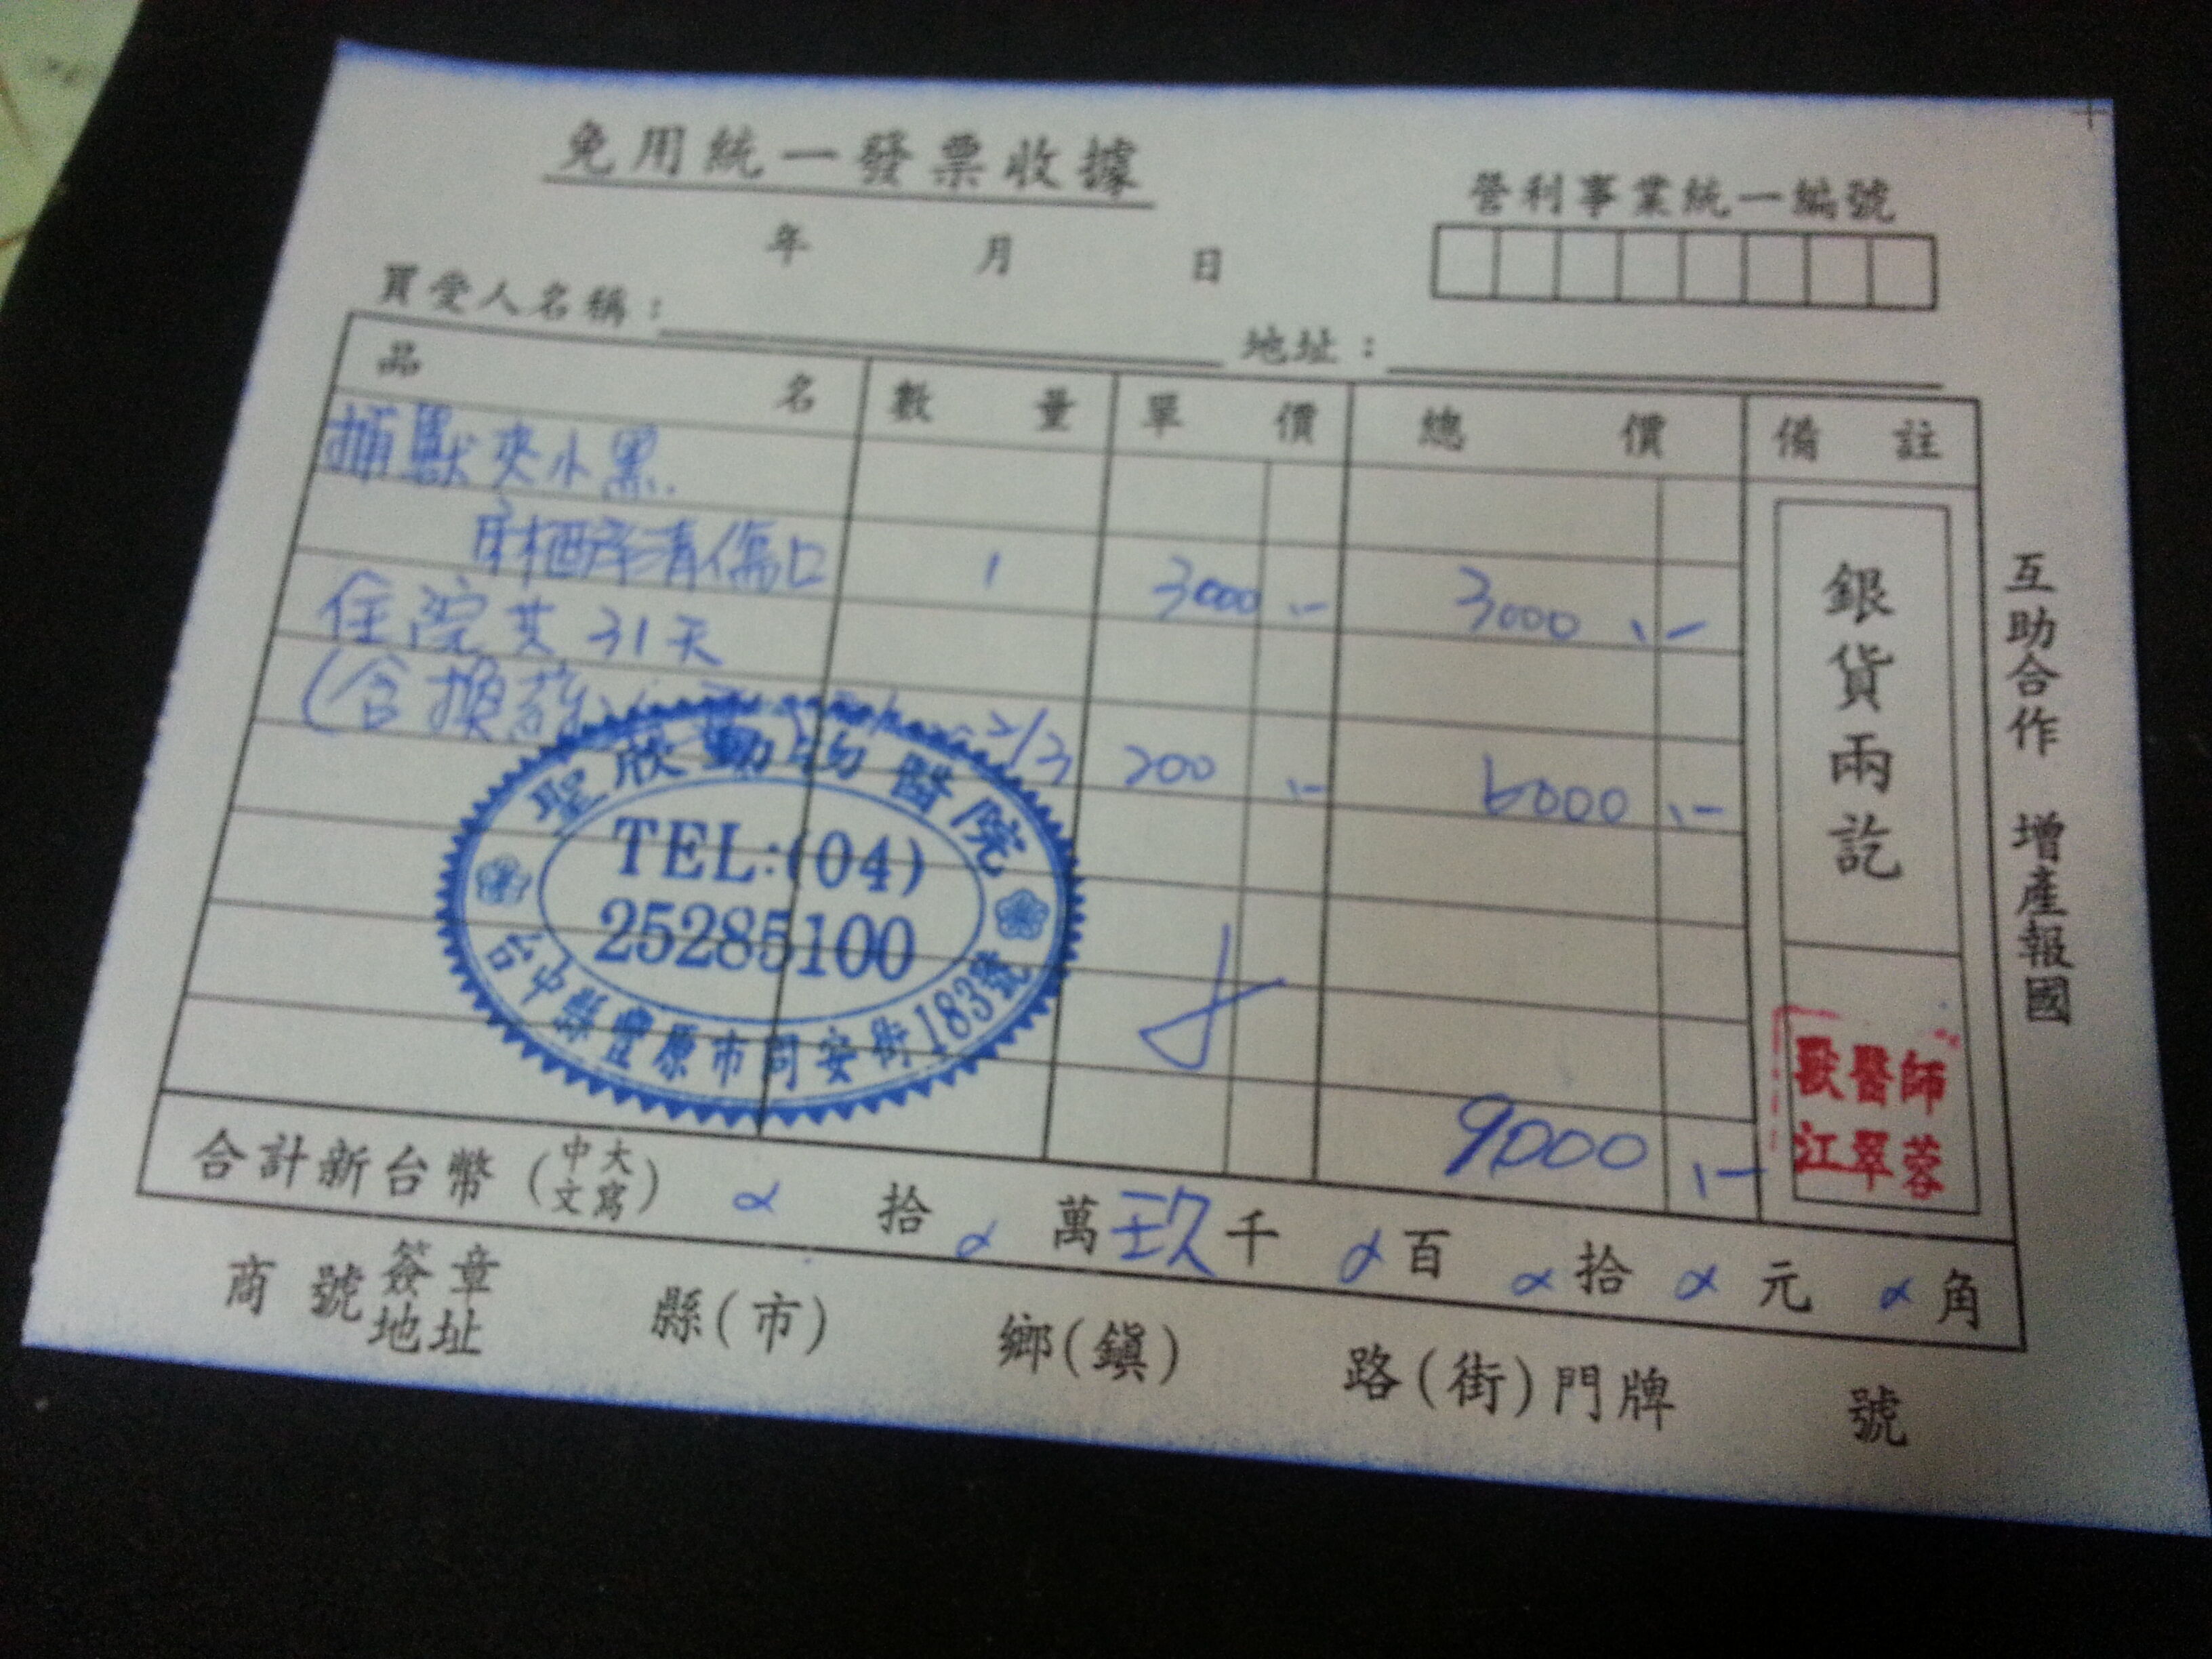 免用統一發票收據
營利事業統一編號
年 月 日
買受人名稱： 地址：
品名 數量 單價 總價 備註
捕獸夾小黑
麻醉清傷口 1 3000 .- 3000 .-
住院共31天
(含換藥 2/3 200 .- 6000 .-
聖欣動物醫院
TEL:(04)
25285100
台中縣豐原市同安街183號
銀貨兩訖
獸醫師
江翠蓉
互助合作 增產報國
9000 .-
合計新台幣(中文大寫) 拾 萬 玖 千 百 拾 元 角
商號簽章地址 縣(市) 鄉(鎮) 路(街)門牌 號